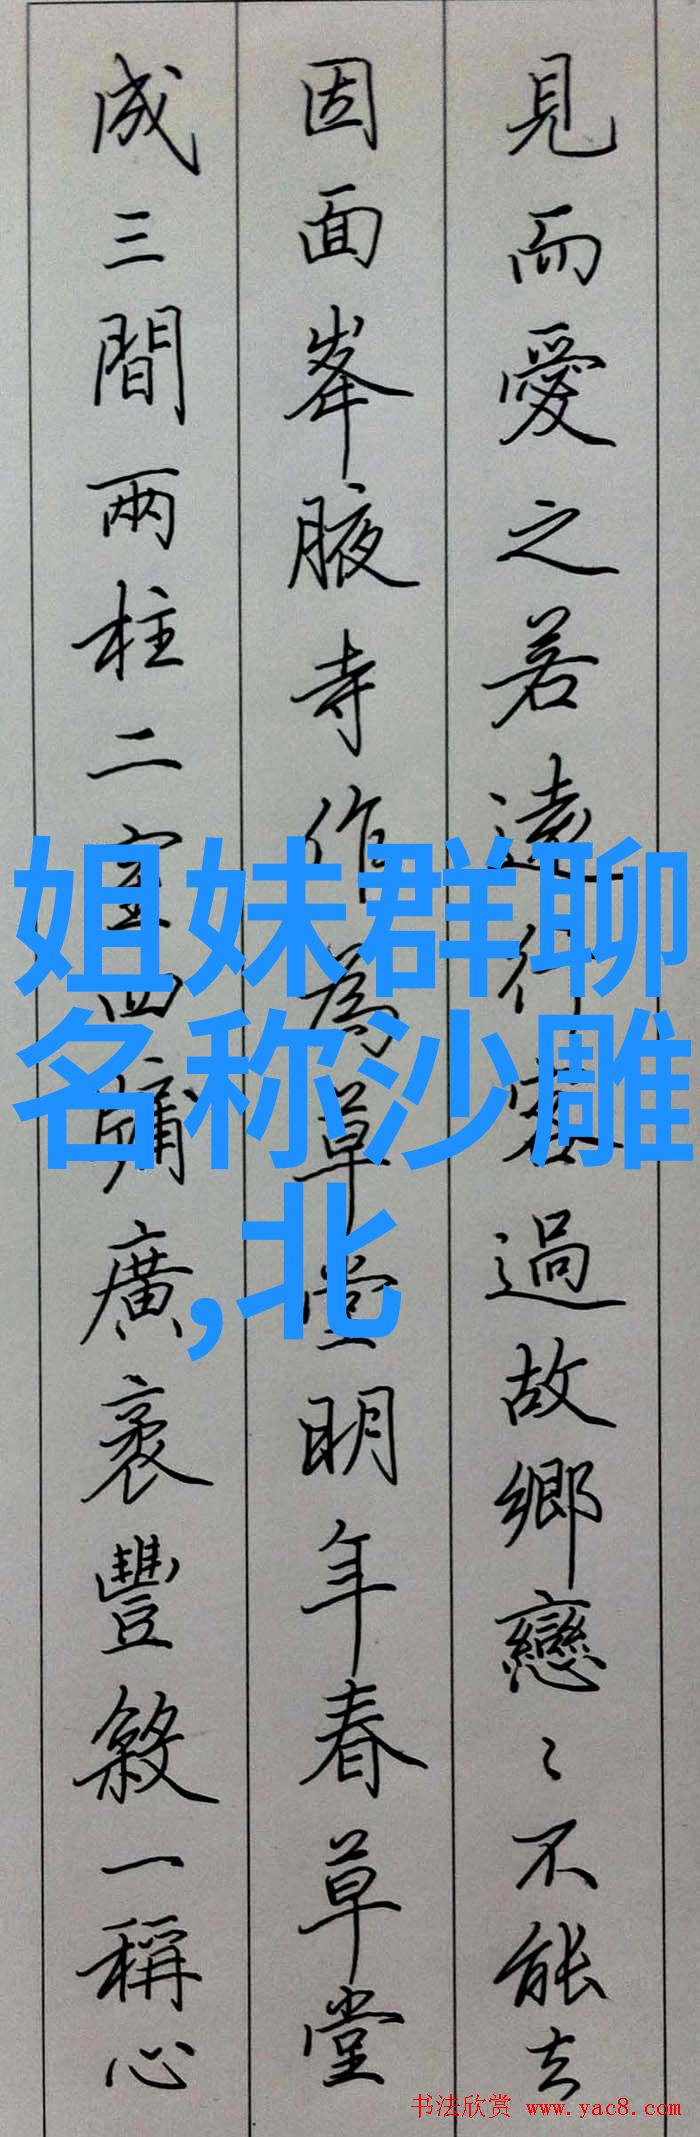 見而愛之若遠行客過故鄉戀〻不能去
因面峯腋寺作為草堂明年春草堂
成三間兩柱二室四牖廣袤豐殺一稱心
姐妹群聊
名称沙雕
,北
书法欣赏 www.yac8.com